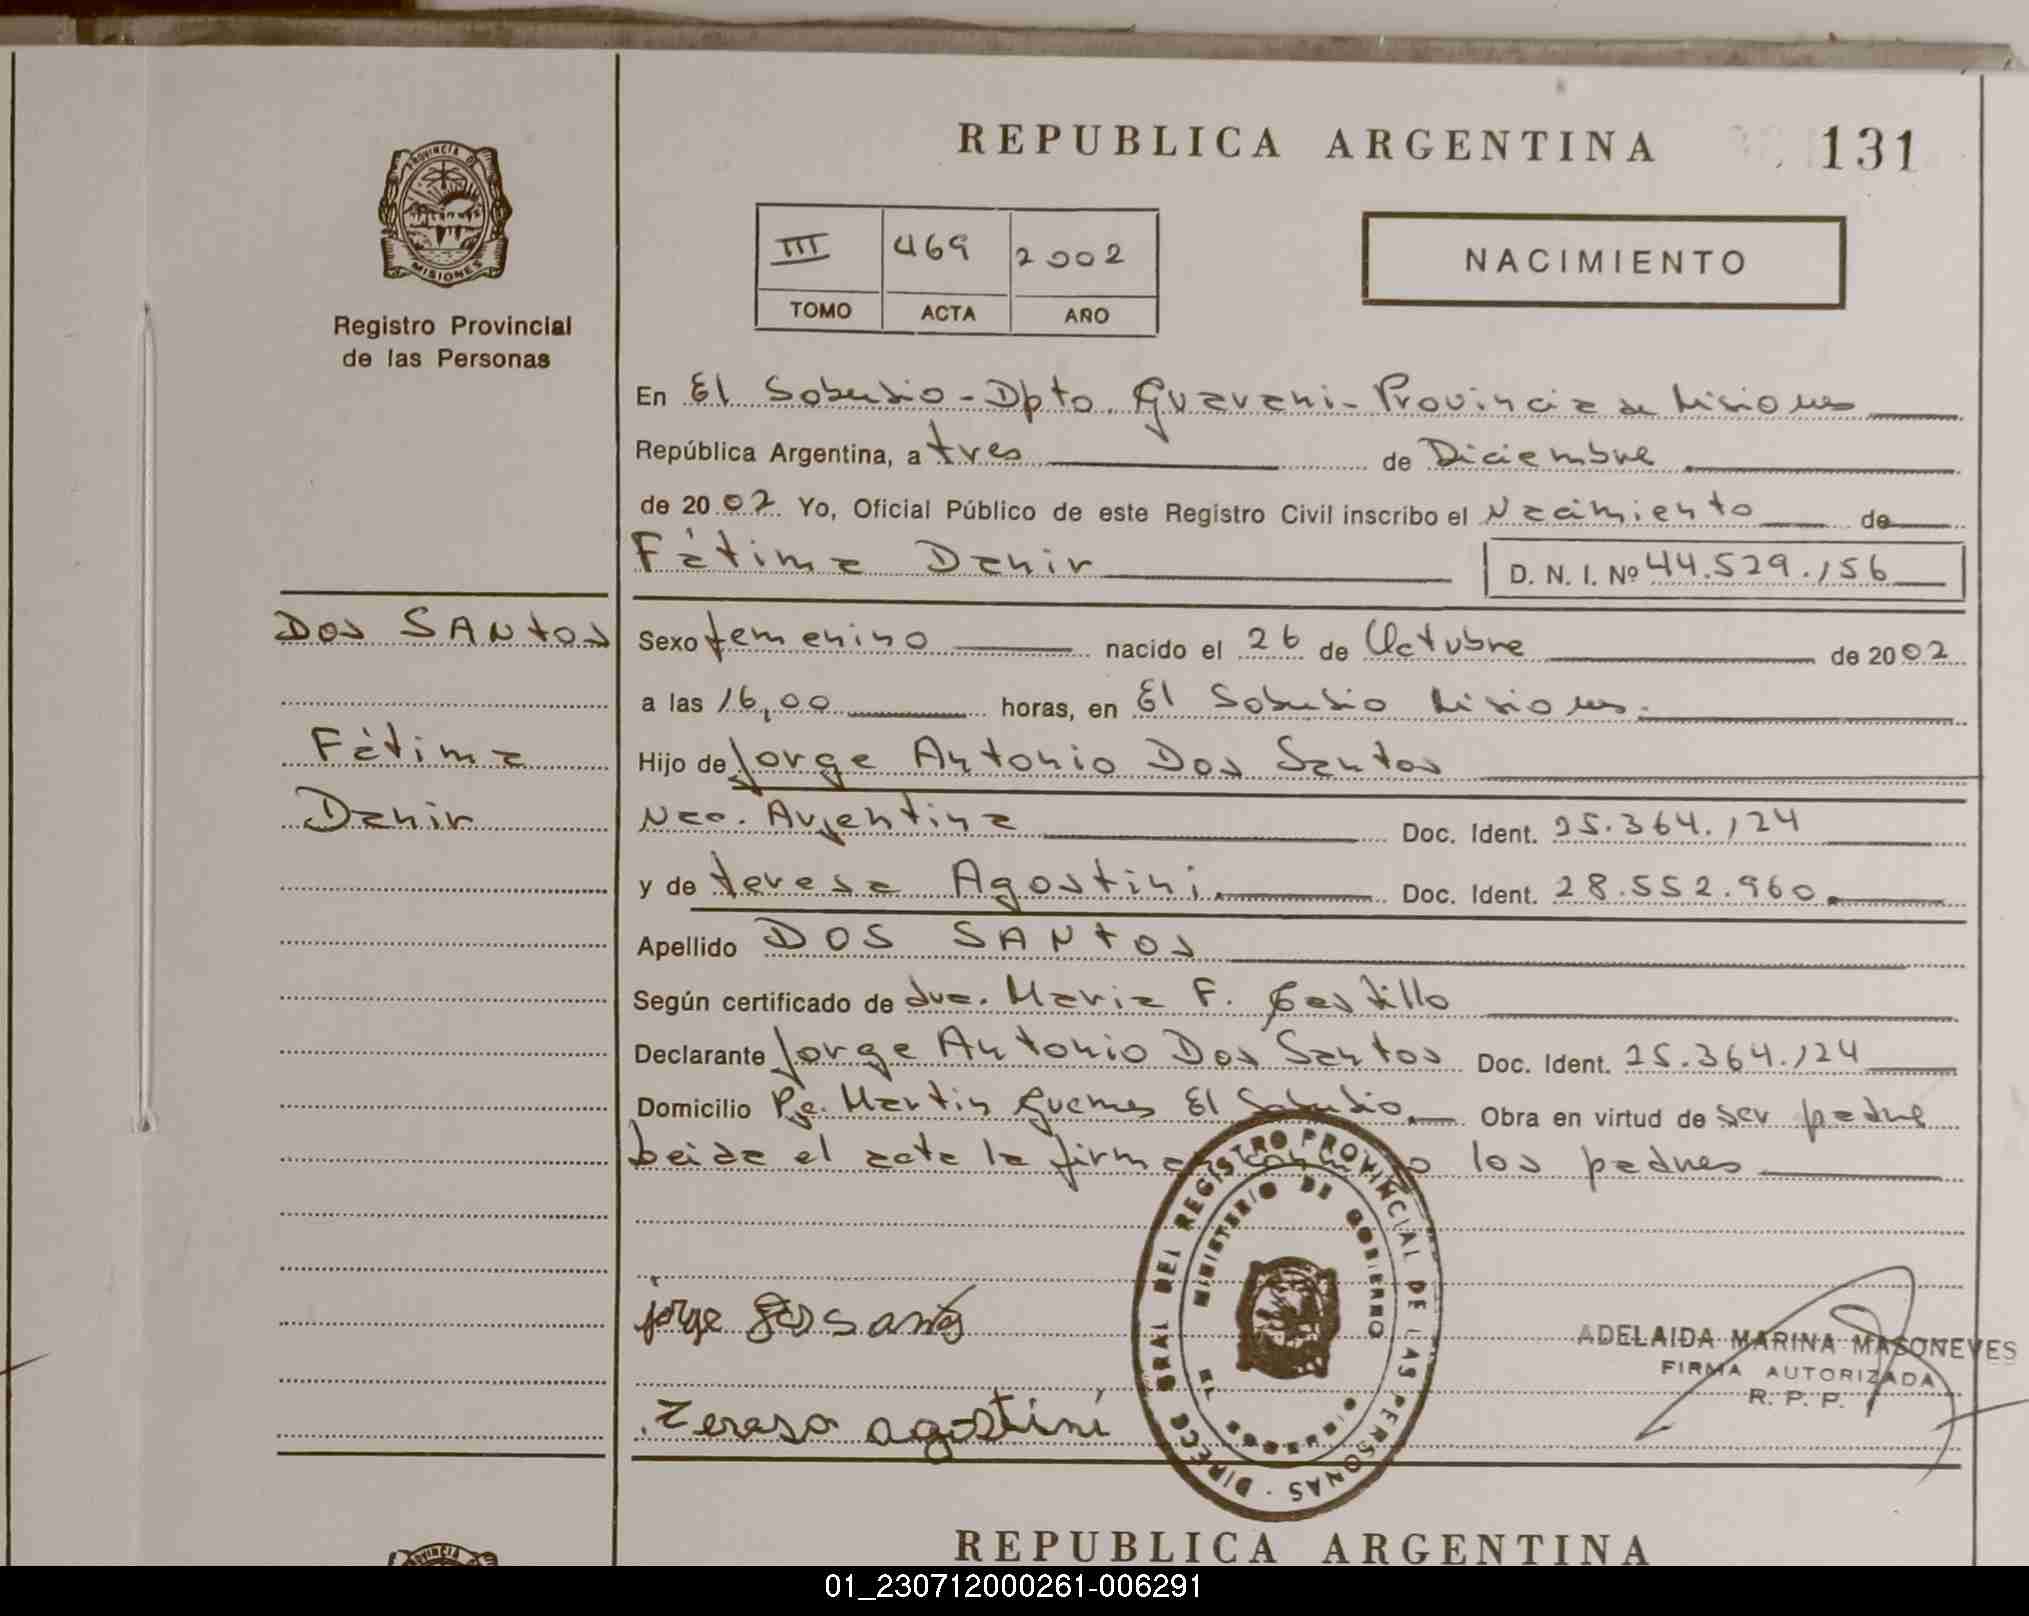 REPUBLICA ARGENTINA 131
PROVINCIA DE
MISIONES
Registro Provincial
de las Personas
III 469 2002
TOMO ACTA AÑO
NACIMIENTO
En El Soberbio - Dpto. Guarani - Provincia de Misiones
República Argentina, a tres de Diciembre
de 2002 Yo, Oficial Público de este Registro Civil inscribo el Nacimiento de
Fátima Danir D. N. I. Nº 44.529.156
DOS SANTOS
Fátima
Danir
Sexo femenino nacido el 26 de Octubre de 2002
a las 16,00 horas, en El Soberbio Misiones.
Hijo de Jorge Antonio Dos Santos
Nac. Argentina Doc. Ident. 25.364.124
y de teresa Agostini. Doc. Ident. 28.552.960
Apellido DOS SANTOS
Según certificado de dra. Maria F. Castillo
Declarante Jorge Antonio Dos Santos Doc. Ident. 25.364.124
Domicilio Pje. Martin Guemes El Soberbio Obra en virtud de ser padre
Leida el acta la firman conmigo los padres
jorge dos santos
Teresa agostini
DIRECC. GRAL DEL REGISTRO PROVINCIAL DE LAS PERSONAS
MINISTERIO DE GOBIERNO
EL MISIONES
ADELAIDA MARINA MASONEVES
FIRMA AUTORIZADA
R. P. P.
REPUBLICA ARGENTINA
01_230712000261-006291